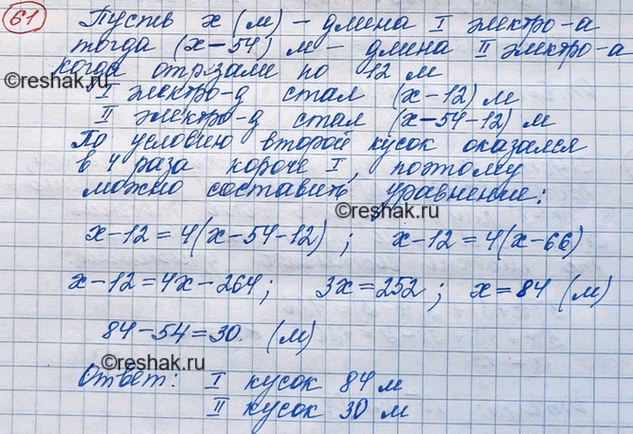 61 Пусть х (м) – длина I электро-а
тогда (х–54) м – длина II электро-а
когда отрезали по 12 м
©reshak.ru
I электро-д стал (х–12) м
II электро-д стал (х–54–12) м
По условию второй кусок оказался
в 4 раза короче I, поэтому
можно составить уравнение:
©reshak.ru
х–12=4(х–54–12); х–12=4(х–66)
х–12=4х–264; 3х=252; х=84 (м)
84–54=30. (м)
©reshak.ru
Ответ: I кусок 84 м
II кусок 30 м